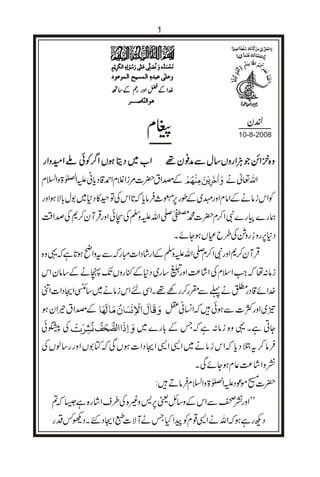 1
نحمدہ و نصلی علی رسولہ الکریم
وعلی عبدہ المسیح الموعود
خدا کے فضل اور رحم کے ساتھ
ھو الناصر
لندن
10-8-2008
پیغام
وہ خزائن جو ہزاروں سال سے مدفون تھے اب میں دیتا ہوں اگر کوئی ملے امیدوار
اللہ تعالیٰ نے وَاٰخَرِیْنَ مِنْہُمْ کے مصداق حضرت مرزا غلام احمد قادیانی علیہ الصلوٰۃ والسلام
کو اس زمانے کے امام اور مہدی کے طور پر مبعوث فرمایا کہ تا اس کی توحید کا دنیا میں بول بالا ہو اور
ہمارے پیارے نبی اکرم حضرت محمد مصطفیٰ صلی اللہ علیہ وسلم کی سچائی اور قرآن کریم کی صداقت
دنیا پر روزِ روشن کی طرح عیاں ہو جائے۔
قرآن کریم اور نبی اکرم صلی اللہ علیہ وسلم کے ارشادات مبارکہ سے یہ واضح ہوتا ہے کہ وہ یہی
زمانہ تھا کہ جب اسلام کی اشاعت اور تبلیغ ساری دنیا کے کناروں تک پہنچانے کے سامان اس
قادر مطلق خدا نے پہلے سے مقرر کر رکھے تھے۔ اسی لئے اس زمانے میں سائنسی ایجادات اتنی
تیزی اور کثرت سے ہوئی ہیں کہ انسانی عقل وَقَالَ الْاِنْسَانُ مَا لَہَا کے مصداق حیران ہو
جاتی ہے۔ یہی وہ زمانہ ہے کہ جس کے بارے میں وَاِذَا الصُّحُفُ نُشِرَتْ کی پیشگوئی
فرما کر یہ اعلان دیا کہ اس زمانہ میں ایسی ایسی ایجادات ہوں گی کہ کتابوں اور رسالوں کی
نشر و اشاعت عام ہو جائے گی۔
حضرت مسیح موعود علیہ الصلوٰۃ والسلام فرماتے ہیں:
’’اور نشر صحف سے اس کے وسائل یعنی پریس وغیرہ کی طرف اشارہ ہے جیسا کہ تم
دیکھ رہے ہو کہ اللہ نے ایسی قوم کو پیدا کیا جس نے آلات طبع ایجاد کئے۔ دیکھو کس قدر